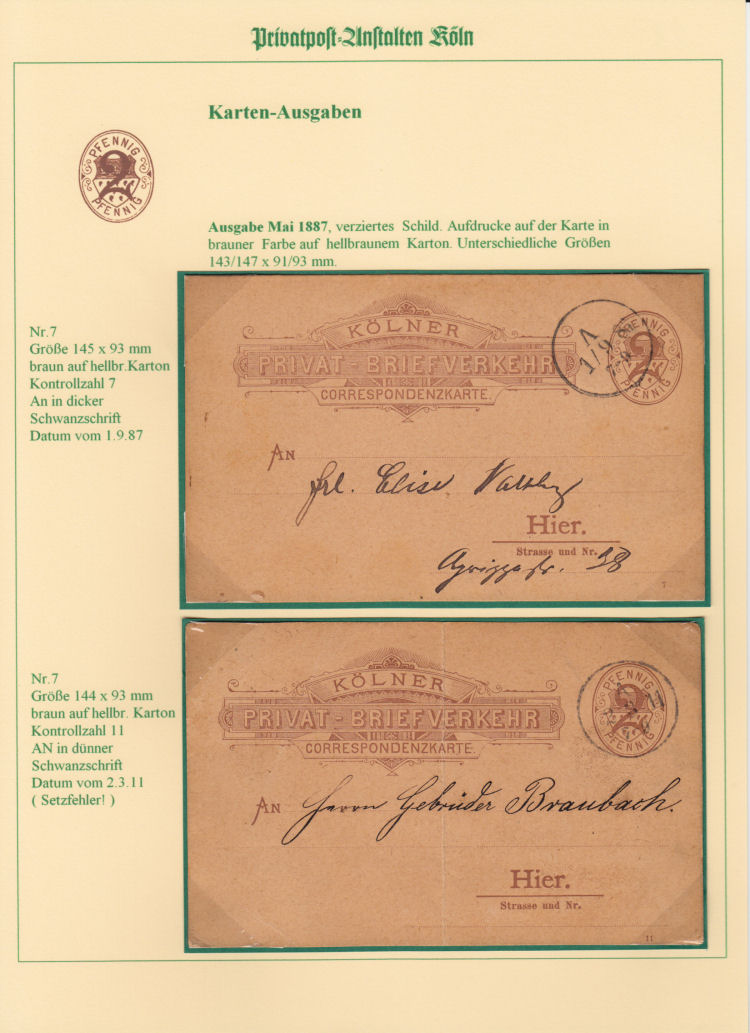 Privatpost-Anstalten Köln
Karten-Ausgaben
PFENNIG
2
PFENNIG
Ausgabe Mai 1887, verziertes Schild. Aufdrucke auf der Karte in
brauner Farbe auf hellbraunem Karton. Unterschiedliche Größen
143/147 x 91/93 mm.
Nr.7
Größe 145 x 93 mm
braun auf hellbr.Karton
Kontrollzahl 7
An in dicker
Schwanzschrift
Datum vom 1.9.87
KÖLNER
PRIVAT-BRIEFVERKEHR
CORRESPONDENZKARTE.
PFENNIG
2
PFENNIG
1/9
AN
Frl. Elise
Hier.
Strasse und Nr.
Agrippastr. 38
7
Nr.7
Größe 144 x 93 mm
braun auf hellbr. Karton
Kontrollzahl 11
AN in dünner
Schwanzschrift
Datum vom 2.3.11
( Setzfehler! )
KÖLNER
PRIVAT-BRIEFVERKEHR
CORRESPONDENZKARTE.
PFENNIG
2
PFENNIG
AN
Herrn Gebrüder Braubach.
Hier.
Strasse und Nr.
11